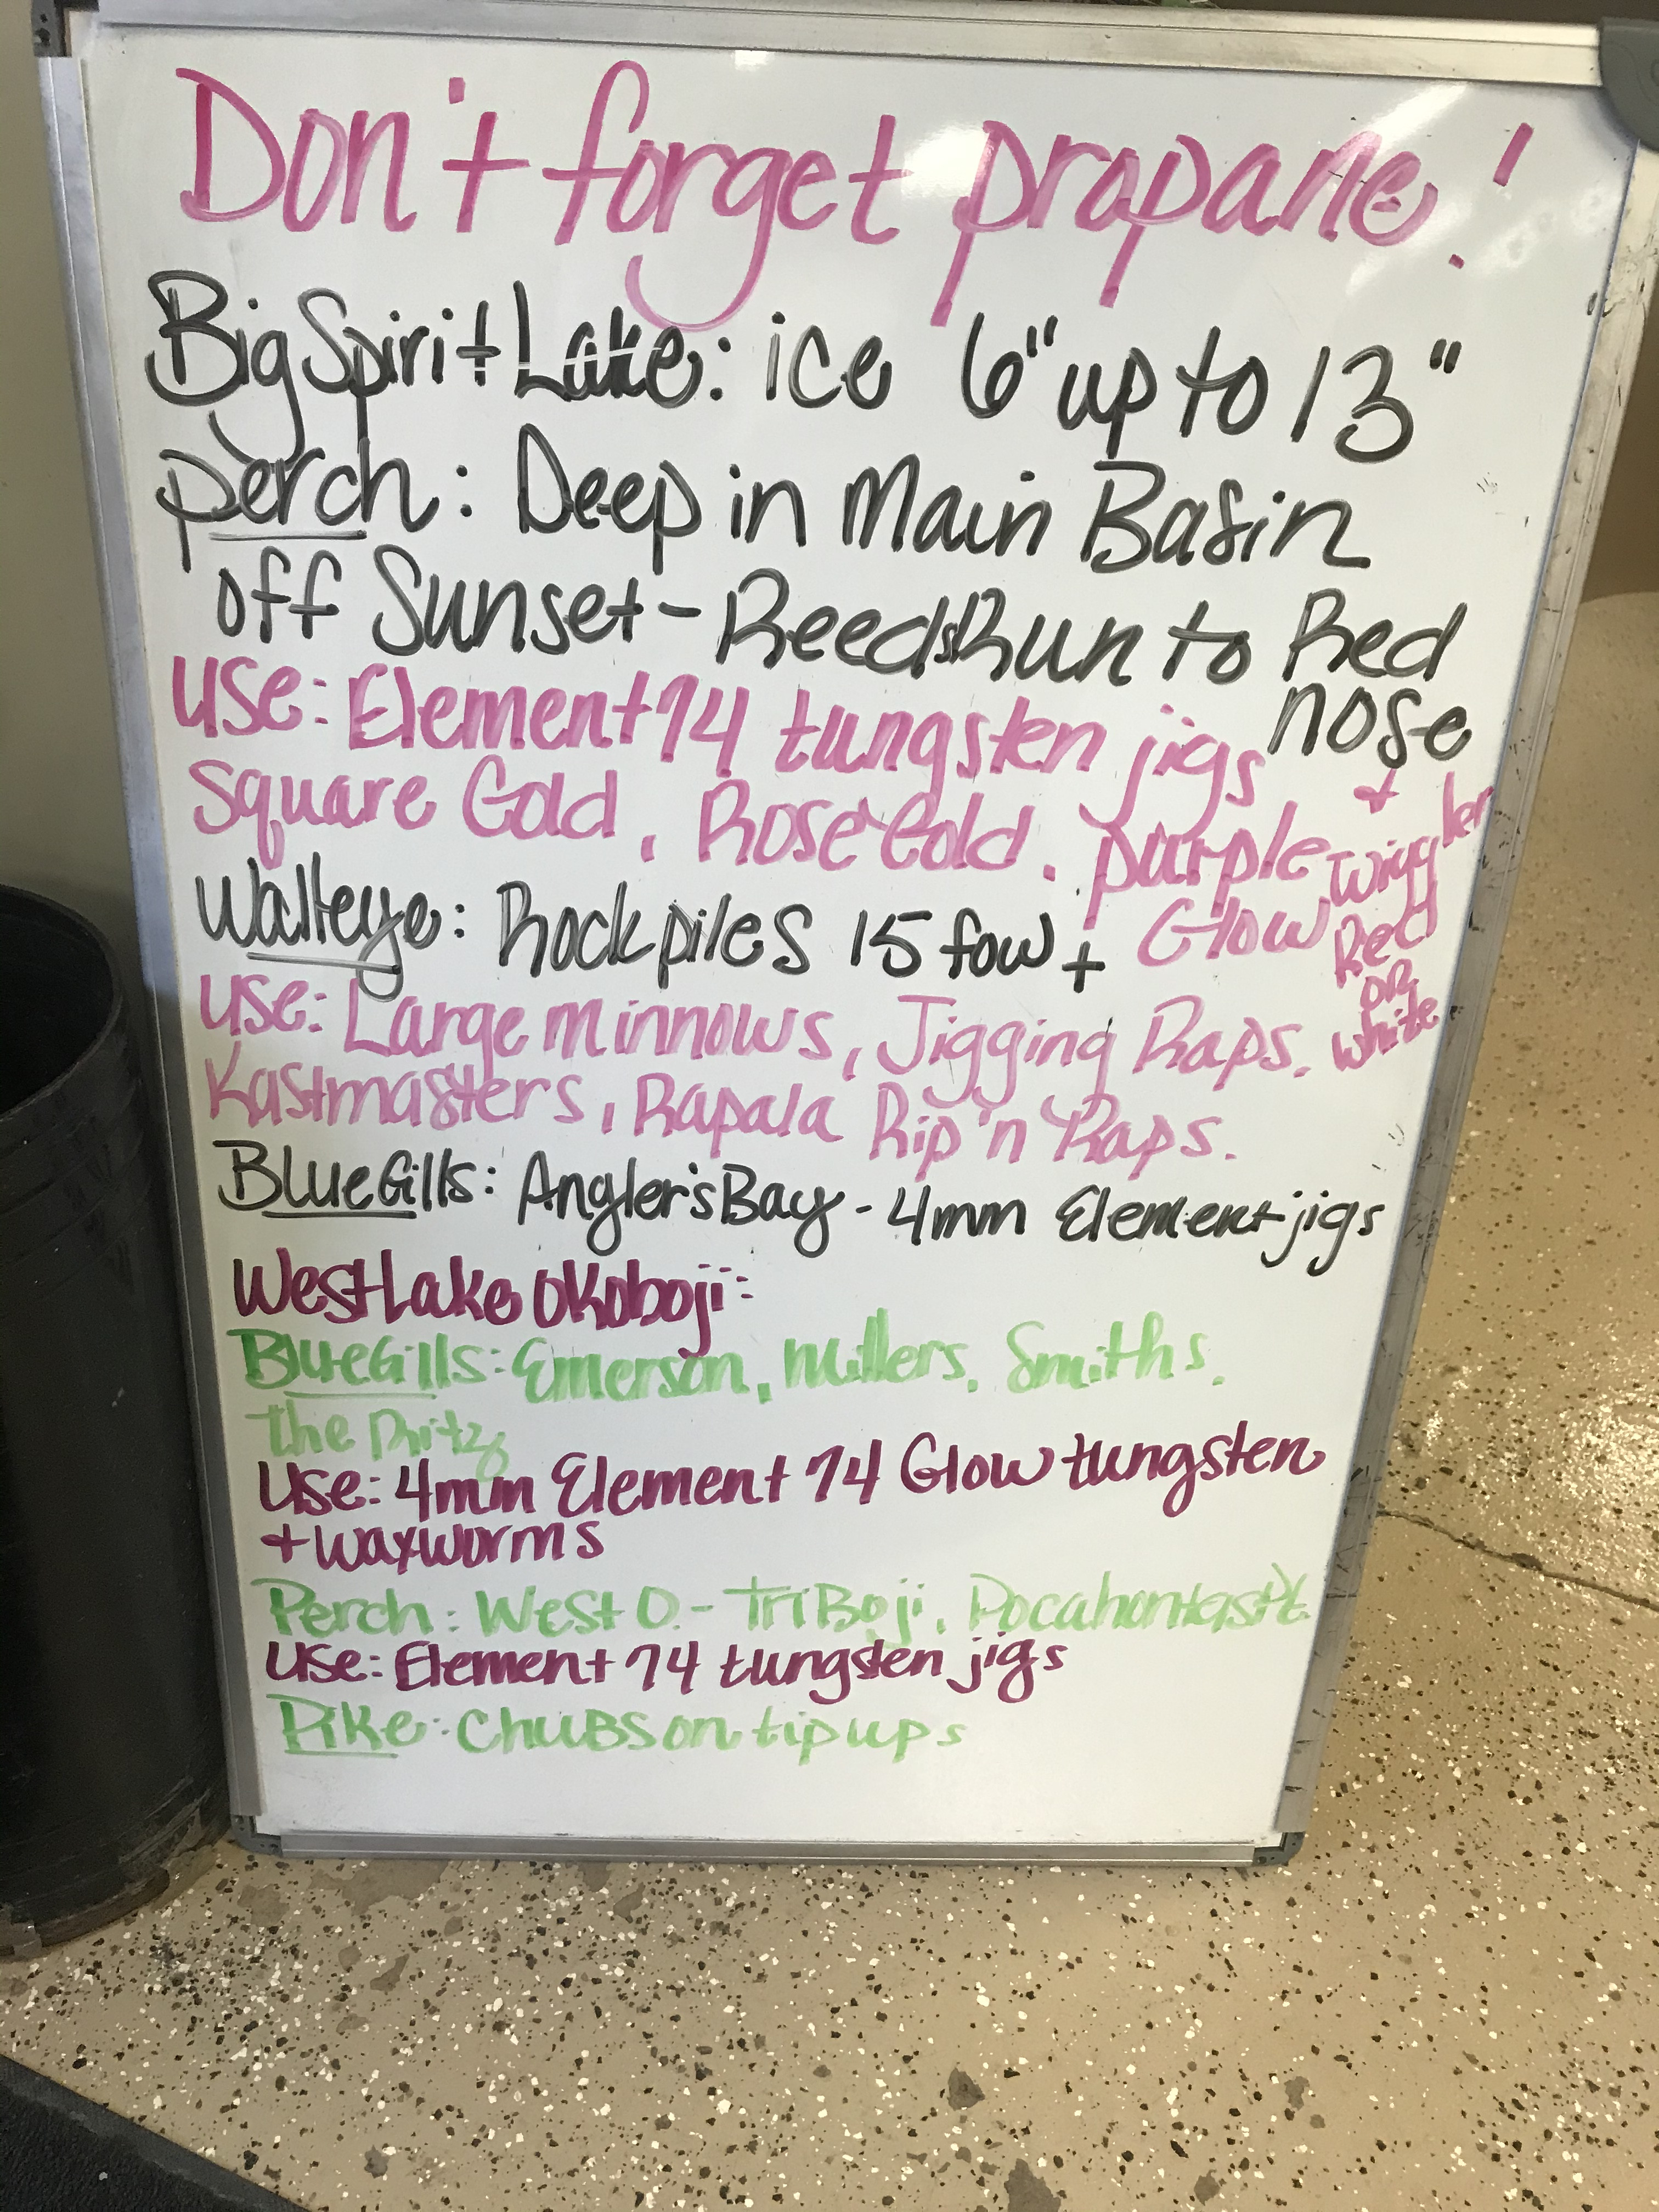 Don't forget propane!
Big Spirit Lake: ice 6" up to 13"
perch: Deep in Main Basin
off Sunset - Reeds Run to Red
nose
Use: Element 74 tungsten jigs
Square Gold, Rose Gold, purple
Glow
+ wiggler
Red
or
white
Walleye: Rockpiles 15 fow +
Use: Large minnows, Jigging Raps.
Kastmasters, Rapala Rip'n Raps.
BlueGills: Angler's Bay - 4mm Element jigs
West Lake Okoboji:
BlueGills: Emerson, Millers, Smiths,
the Ritz
Use: 4mm Element 74 Glow tungsten
+ waxworms
Perch: West O. - TriBoji, Pocahontas Pt.
Use: Element 74 tungsten jigs
Pike: Chubs on tip ups